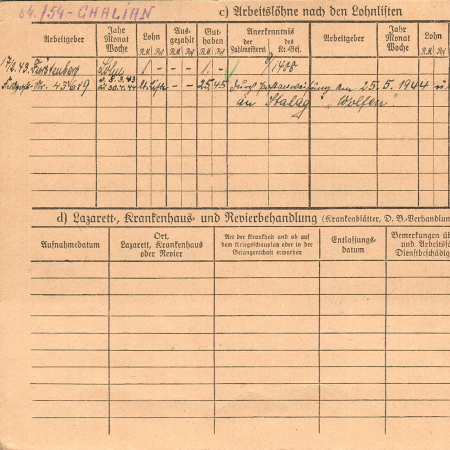 54./54- GHALIAN
c) Arbeitslöhne nach den Lohnlisten
Arbeitgeber
Jahr Monat Woche
Lohn
R.M. Pf.
Ausgezahlt
R.M. Pf.
Guthaben
R.M. Pf.
Anerkenntnis
des Zahlmeisters
des Kr.-Gef.
Arbeitgeber
Jahr Monat Woche
Lohn
R.M. Pf.
17.2.43. Fürstenberg Lohn / - - - /. - 9/1408
Feldpost-Nr. 43619 v. 8.3.43 bis 30.4.44 lt. Liste - - 25 45 durch Postanweisung am 25.5.1944
an Stalag "Wolfen"
d) Lazarett-, Krankenhaus- und Revierbehandlung (Krankenblätter, D.B.-Verhandlun
Aufnahmedatum
Ort, Lazarett, Krankenhaus oder Revier
Art der Krankheit und ob auf dem Kriegsschauplatz oder in der Gefangenschaft erworben
Entlassungsdatum
Bemerkungen üb
und Arbeitsfä
Dienstbeschädig